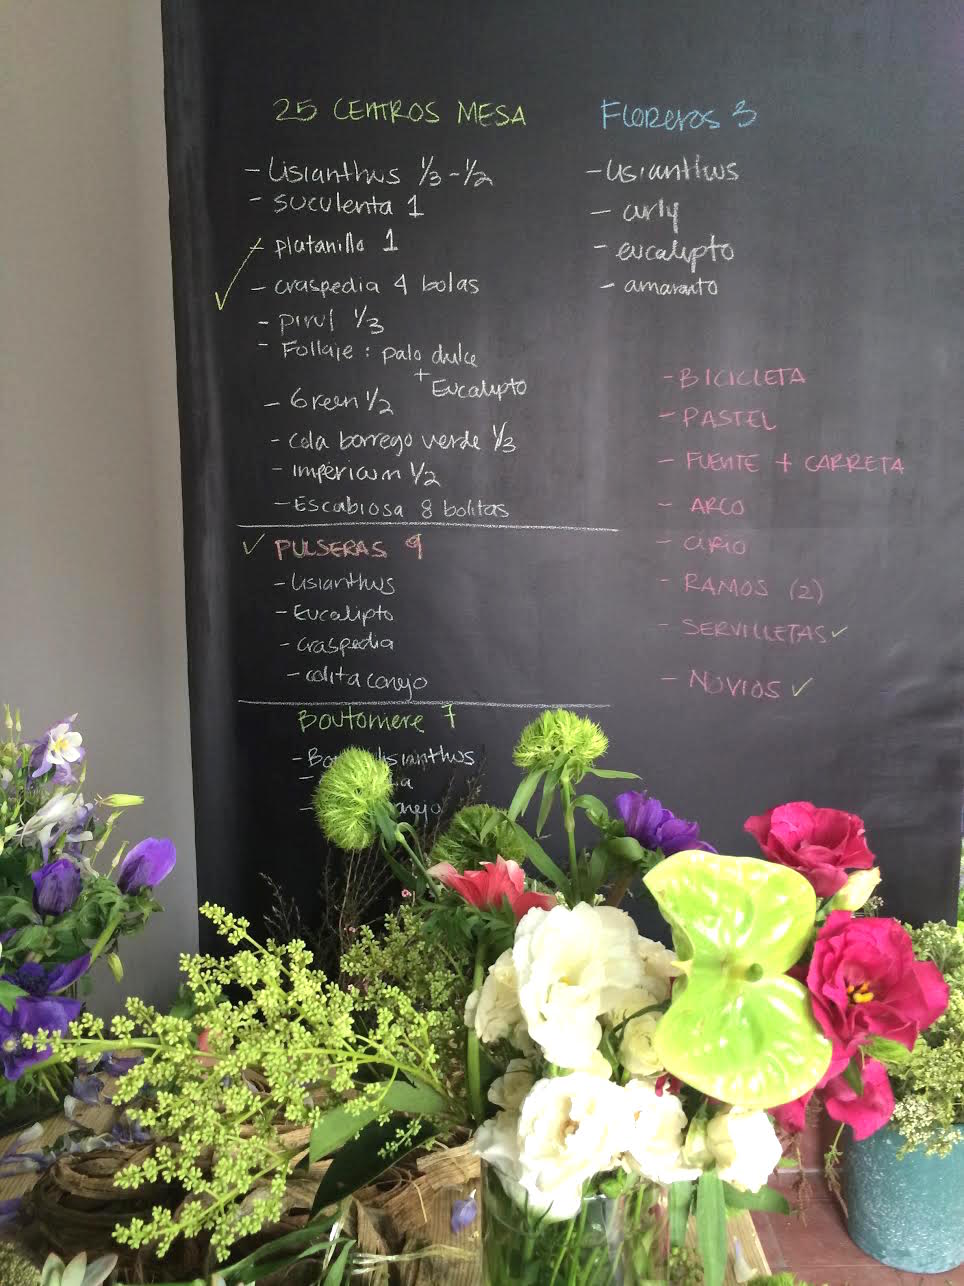 25 CENTROS MESA
- Lisianthus 1/3 - 1/2
- suculenta 1
- platanillo 1
- craspedia 4 bolas
- pirul 1/3
- Follaje : palo dulce
+ Eucalipto
- Green 1/2
- cola borrego verde 1/3
- impericum 1/2
- Escabiosa 8 bolitas
✓ PULSERAS 9
- Lisianthus
- Eucalipto
- craspedia
- colita conejo
Boutoniere 7
lisianthus
Floreros 3
- Lisianthus
- curly
- eucalipto
- amaranto
- BICICLETA
- PASTEL
- FUENTE + CARRETA
- ARCO
- CIRIO
- RAMOS (2)
- SERVILLETAS ✓
- NOVIOS ✓